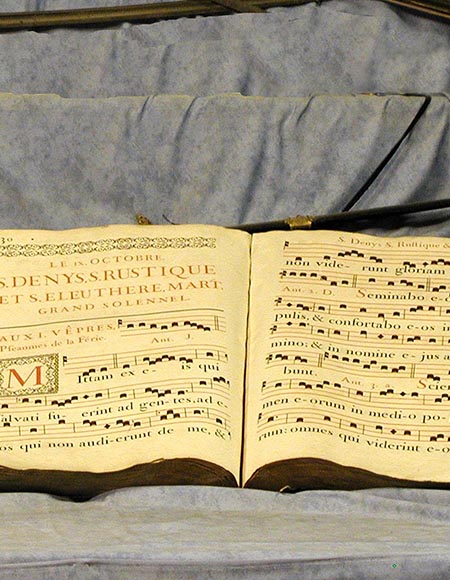 LE IX. OCTOBRE.
S. DENYS, S. RUSTIQUE
ET S. ELEUTHERE, MART.
GRAND SOLENNEL.
AUX I. VÊPRES,
Pseaumes de la Férie. Ant. J.
MIttam ex e- is qui
salvati fu- erint ad gen-tes, ad e-
os qui non audierunt de me, &
S. Denys S. Rustique &
non vide- runt gloriam
Ant. 2. D. Seminabo e-o
pulis, & confortabo e-os in
mino: & in nomine e- jus a
bunt. Ant. 3. a.
men e-orum in medio po-
rum: omnes qui viderint e-o